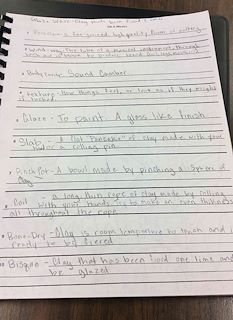 • Porcelain - a fine ground, high quality form of
• Windway - The tube of a musical instrument, through
which air is blown to produce sound
• Body/Cavity - Sound Chamber
• Texture - How things feel, or look as if they might
if touched.
• Glaze - To paint. A glass like finish
• Slab - A flat "pancake" of clay made with your
or a rolling pin
• Pinch Pot - A bowl made by pinching a sphere of
Clay
• Coil - a long thin rope of clay made by rolling
with your hands. Try to make an even thickness
all throughout the rope
• Bone-Dry - Clay is room temperature to touch and
ready to be fiered
• Bisque - Clay that has been fired one time and
be glazed